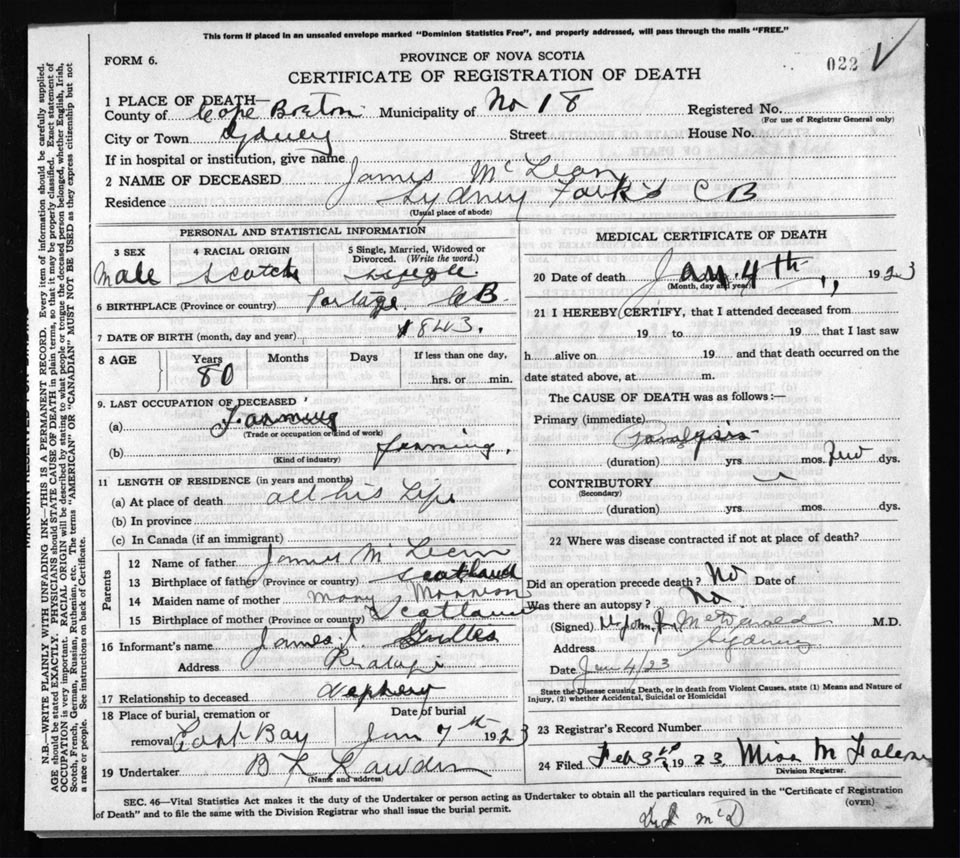 This form if placed in an unsealed envelope marked "Dominion Statistics Free", and properly addressed, will pass through the mails "FREE."
FORM 6.
PROVINCE OF NOVA SCOTIA
022
CERTIFICATE OF REGISTRATION OF DEATH
1 PLACE OF DEATH—
County of Cape Breton Municipality of No 18 Registered No.
(For use of Registrar General only)
City or Town Sydney Street House No.
If in hospital or institution, give name
2 NAME OF DECEASED James McLean
Residence Sydney Forks C B
(Usual place of abode)
PERSONAL AND STATISTICAL INFORMATION
3 SEX Male
4 RACIAL ORIGIN Scotch
5 Single, Married, Widowed or Divorced. (Write the word.) Single
6 BIRTHPLACE (Province or country) Portage, C.B.
7 DATE OF BIRTH (month, day and year) 1843.
8 AGE Years 80 Months Days If less than one day, hrs. or min.
9. LAST OCCUPATION OF DECEASED
(a) Farming
(Trade or occupation or kind of work)
(b) farming,
(Kind of industry)
11 LENGTH OF RESIDENCE (in years and months)
(a) At place of death all his Life
(b) In province
(c) In Canada (if an immigrant)
Parents
12 Name of father James McLean
13 Birthplace of father (Province or country) Scotland
14 Maiden name of mother Mary Morrison
15 Birthplace of mother (Province or country) Scotland
16 Informant's name James J.
Address
17 Relationship to deceased nephew
18 Place of burial, cremation or removal East Bay
Date of burial Jan 7th 1923
19 Undertaker B L
(Name and address)
MEDICAL CERTIFICATE OF DEATH
20 Date of death Jan. 4th, 1923
(Month, day and year)
21 I HEREBY CERTIFY, that I attended deceased from
19 to 19 that I last saw
h alive on 19 and that death occurred on the
date stated above, at m.
The CAUSE OF DEATH was as follows:—
Primary (immediate)
Paralysis
(duration) yrs mos. few dys.
CONTRIBUTORY
(Secondary)
(duration) yrs. mos. dys.
22 Where was disease contracted if not at place of death?
Did an operation precede death? No Date of
Was there an autopsy? No
(Signed) M.D.
Address Sydney
Date Jan 4/23
State the Disease causing Death, or in death from Violent Causes, state (1) Means and Nature of Injury, (2) whether Accidental, Suicidal or Homicidal
23 Registrar's Record Number
24 Filed Feb 3rd 1923, Miss M
Division Registrar.
SEC. 46—Vital Statistics Act makes it the duty of the Undertaker or person acting as Undertaker to obtain all the particulars required in the "Certificate of Registration
of Death" and to file the same with the Division Registrar who shall issue the burial permit.
(OVER)
N.B.—WRITE PLAINLY WITH UNFADING INK—THIS IS A PERMANENT RECORD. Every item of information should be carefully supplied.
AGE should be stated EXACTLY. PHYSICIANS should STATE CAUSE OF DEATH in plain terms, so that it may be properly classified. Exact statement of
OCCUPATION is very important. RACIAL ORIGIN will be described by stating to what people or tongue the deceased person belonged, whether English, Irish,
Scotch, French, German, Russian, Ruthenian, etc. The terms "AMERICAN" or "CANADIAN" MUST NOT BE USED as they express citizenship but not
a race or people. See instructions on back of Certificate.